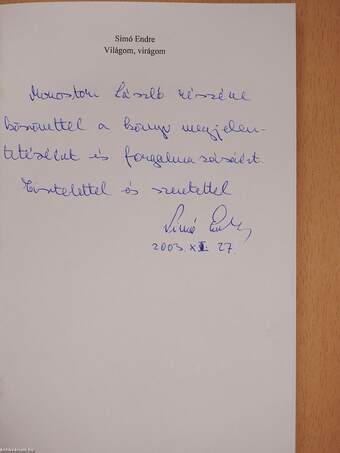 Simó Endre
Világom, virágom
Monostori László részére
köszönettel a könyv megjelen-
tetéséért és forgalmazásáért.
Tisztelettel és szeretettel
Simó Endre
2003. XI. 27.